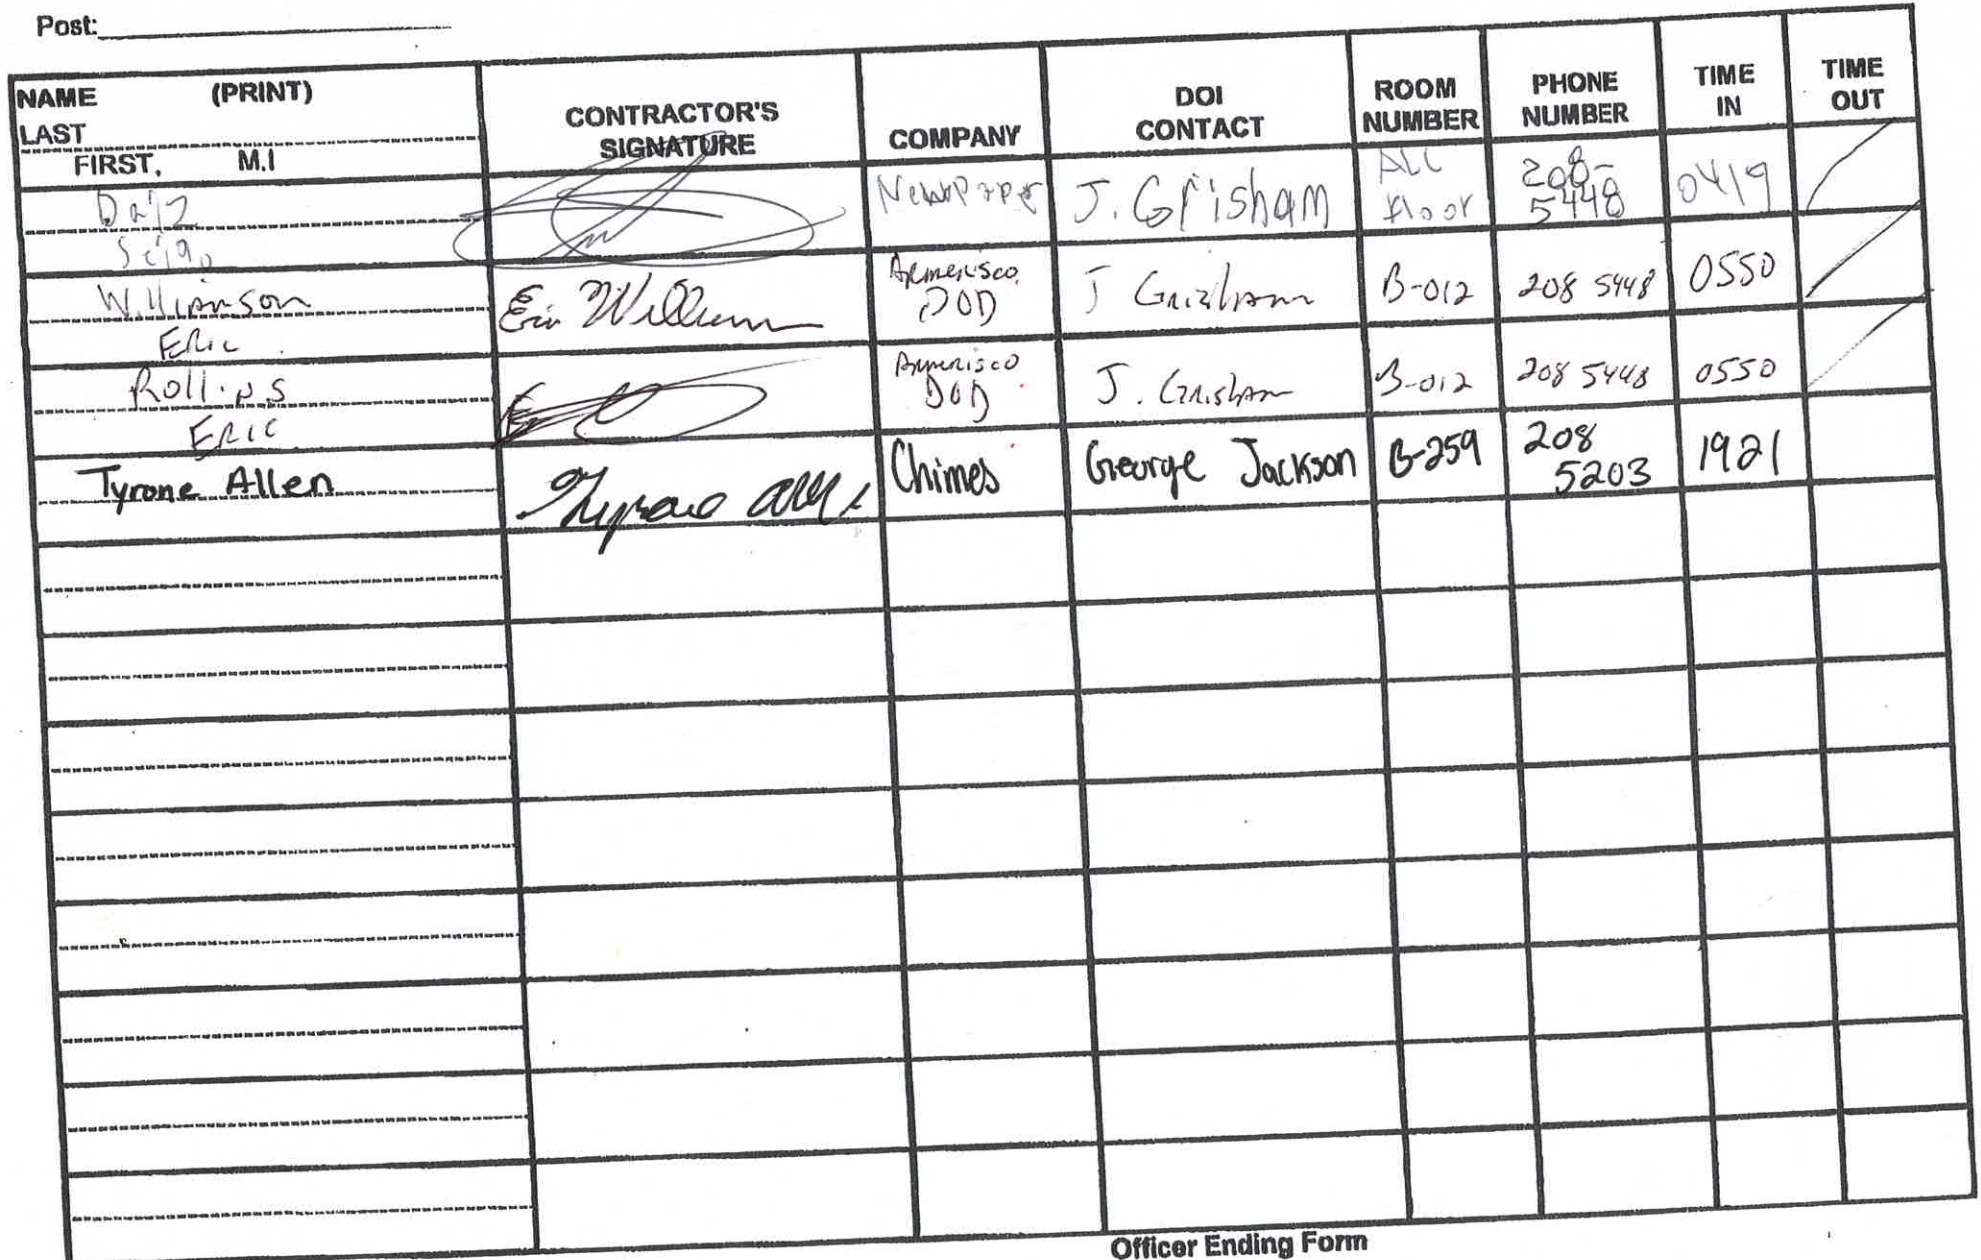 Post:
NAME (PRINT)
LAST
FIRST, M.I
CONTRACTOR'S
SIGNATURE
COMPANY
DOI
CONTACT
ROOM
NUMBER
PHONE
NUMBER
TIME
IN
TIME
OUT
NewsPaper
J. Grisham
ALL
floor
208-
5448
0419
Williamson
Eric
Armerisco
DOD
J Grisham
B-012
208 5448
0550
Rollins
Eric
Armerisco
DOD
J. Grisham
B-012
208 5448
0550
Tyrone Allen
Tyrone Allen
Chimes
George Jackson
B-259
208
5203
1921
Officer Ending Form